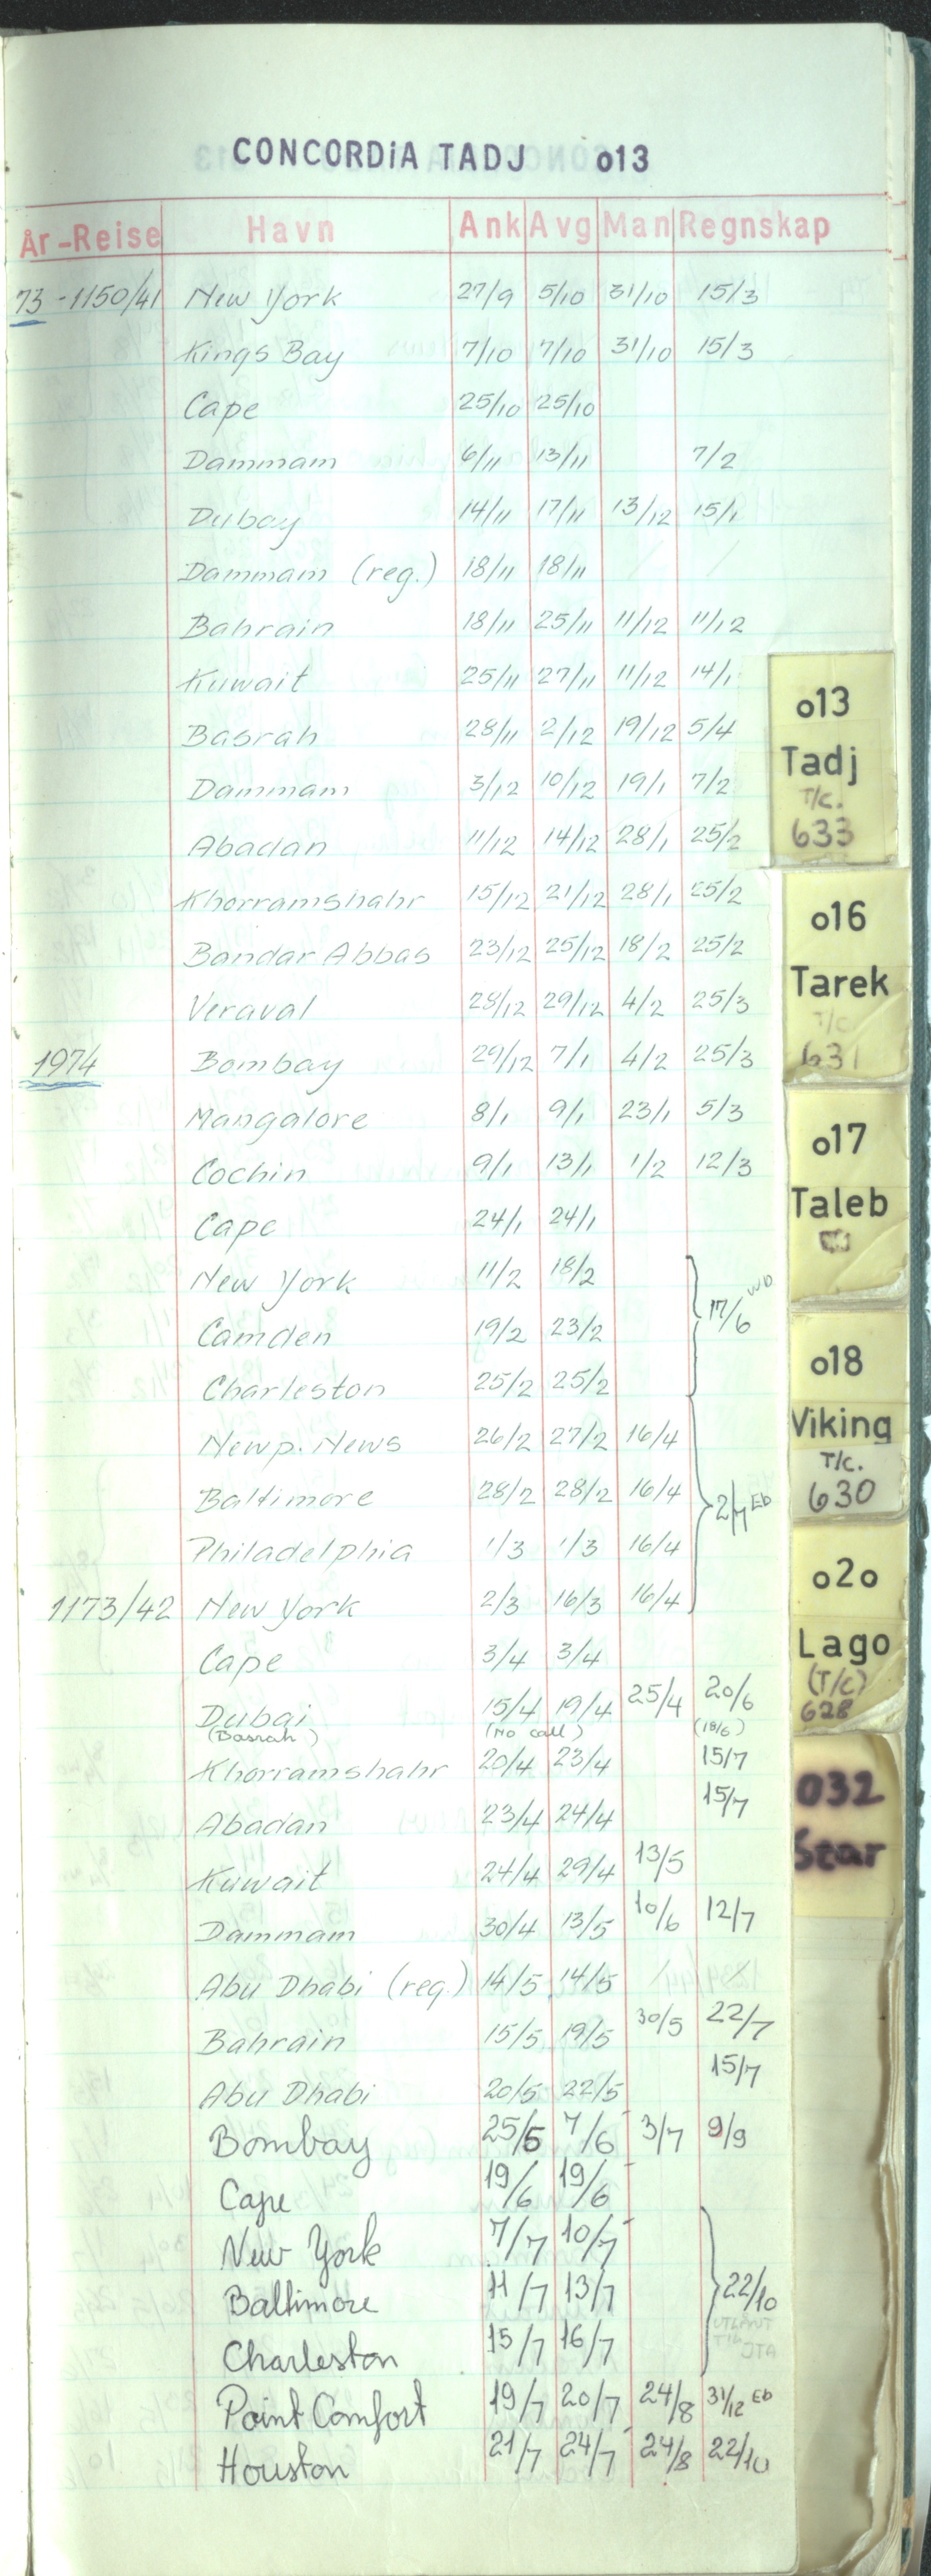 CONCORDiA TADJ o13
År-Reise Havn Ank Avg Man Regnskap
73-1150/41 New York 27/9 5/10 31/10 15/3
Kings Bay 7/10 7/10 31/10 15/3
Cape 25/10 25/10
Dammam 6/11 13/11 7/2
Dubay 14/11 17/11 13/12 15/1
Dammam (reg.) 18/11 18/11 / /
Bahrain 18/11 25/11 11/12 11/12
Kuwait 25/11 27/11 11/12 14/1
Basrah 28/11 2/12 19/12 5/4
Dammam 3/12 10/12 19/1 7/2
Abadan 11/12 14/12 28/1 25/2
Khorramshahr 15/12 21/12 28/1 25/2
Bandar Abbas 23/12 25/12 18/2 25/2
Veraval 28/12 29/12 4/2 25/3
1974 Bombay 29/12 7/1 4/2 25/3
Mangalore 8/1 9/1 23/1 5/3
Cochin 9/1 13/1 1/2 12/3
Cape 24/1 24/1
New York 11/2 18/2
17/6 WD
Camden 19/2 23/2
Charleston 25/2 25/2
Newp. News 26/2 27/2 16/4
Baltimore 28/2 28/2 16/4
2/7 Eb
Philadelphia 1/3 1/3 16/4
1173/42 New York 2/3 16/3 16/4
Cape 3/4 3/4
Dubai 15/4 19/4 25/4 20/6
(Basrah) (No call) (18/6)
Khorramshahr 20/4 23/4 15/7
Abadan 23/4 24/4 15/7
Kuwait 24/4 29/4 13/5
Dammam 30/4 13/5 10/6 12/7
Abu Dhabi (reg.) 14/5 14/5
Bahrain 15/5 19/5 30/5 22/7
Abu Dhabi 20/5 22/5 15/7
Bombay 25/5 7/6 3/7 9/9
Cape 19/6 19/6
New York 7/7 10/7
Baltimore 11/7 13/7 22/10
UTLÅNT
TIL
JTA
Charleston 15/7 16/7
Point Comfort 19/7 20/7 24/8 31/12 Eb
Houston 21/7 24/7 24/8 22/10
o13
Tadj
T/C.
633
o16
Tarek
T/C
631
o17
Taleb
o18
Viking
T/C.
630
o2o
Lago
(T/C)
628
032
Star